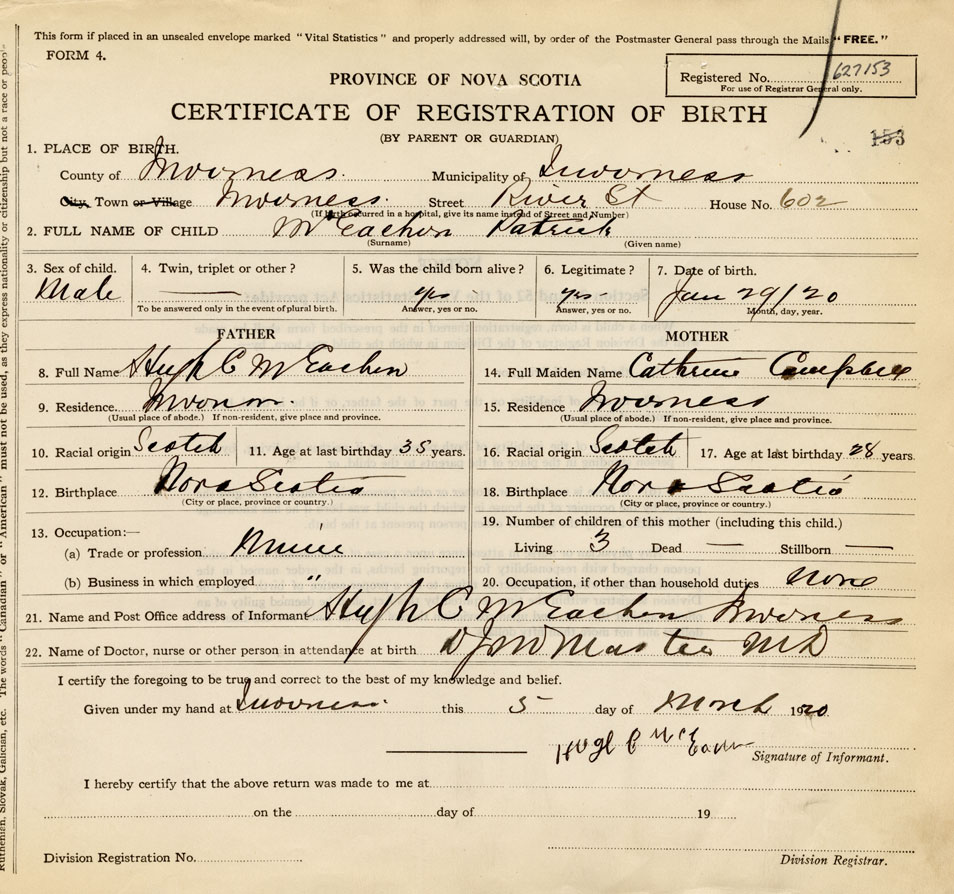 This form if placed in an unsealed envelope marked "Vital Statistics" and properly addressed will, by order of the Postmaster General pass through the Mails "FREE."
FORM 4.
Registered No. 627153
For use of Registrar General only.
PROVINCE OF NOVA SCOTIA
CERTIFICATE OF REGISTRATION OF BIRTH
(BY PARENT OR GUARDIAN)
153
1. PLACE OF BIRTH.
County of Inverness. Municipality of Inverness
City, Town or Village Inverness. Street River St House No. 602
(If birth occurred in a hospital, give its name instead of Street and Number)
2. FULL NAME OF CHILD McEachen Patrick
(Surname) (Given name)
3. Sex of child. 4. Twin, triplet or other? 5. Was the child born alive? 6. Legitimate? 7. Date of birth.
Male yes yes Jan 29/20
To be answered only in the event of plural birth. Answer, yes or no. Answer, yes or no. Month, day, year.
FATHER MOTHER
8. Full Name Hugh C McEachen 14. Full Maiden Name Catherine Campbell
9. Residence Inverness. 15. Residence Inverness
(Usual place of abode.) If non-resident, give place and province. (Usual place of abode.) If non-resident, give place and province.
10. Racial origin Scotch 11. Age at last birthday 35 years. 16. Racial origin Scotch 17. Age at last birthday 28 years.
12. Birthplace Nova Scotia 18. Birthplace Nova Scotia
(City or place, province or country.) (City or place, province or country.)
13. Occupation:— 19. Number of children of this mother (including this child.)
(a) Trade or profession Living 3 Dead — Stillborn —
(b) Business in which employed " 20. Occupation, if other than household duties none
21. Name and Post Office address of Informant Hugh C McEachen Inverness
22. Name of Doctor, nurse or other person in attendance at birth MD
I certify the foregoing to be true and correct to the best of my knowledge and belief.
Given under my hand at Inverness. this 5 day of March 1920
Hugh C McEachen
Signature of Informant.
I hereby certify that the above return was made to me at
on the day of 19
Division Registration No.
Division Registrar.
Ruthenian, Slovak, Galician, etc. The words "Canadian" or "American" must not be used, as they express nationality or citizenship but not a race or people